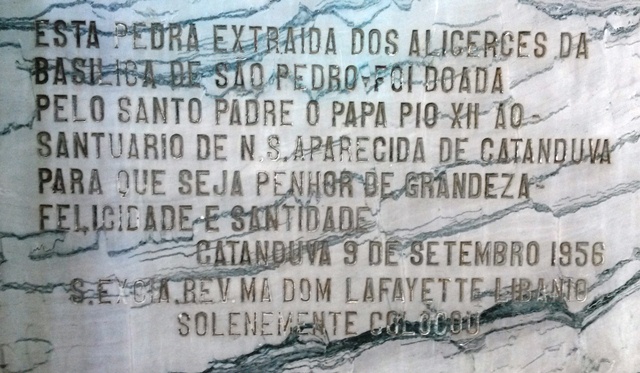 ESTA PEDRA EXTRAIDA DOS ALICERCES DA
BASILICA DE SÃO PEDRO-FOI DOADA
PELO SANTO PADRE O PAPA PIO XII AO
SANTUARIO DE N.S.APARECIDA DE CATANDUVA
PARA QUE SEJA PENHOR DE GRANDEZA-
FELICIDADE E SANTIDADE
CATANDUVA 9 DE SETEMBRO 1956
S.EXCIA.REV.MA DOM LAFAYETTE LIBANIO
SOLENEMENTE COLOCOU